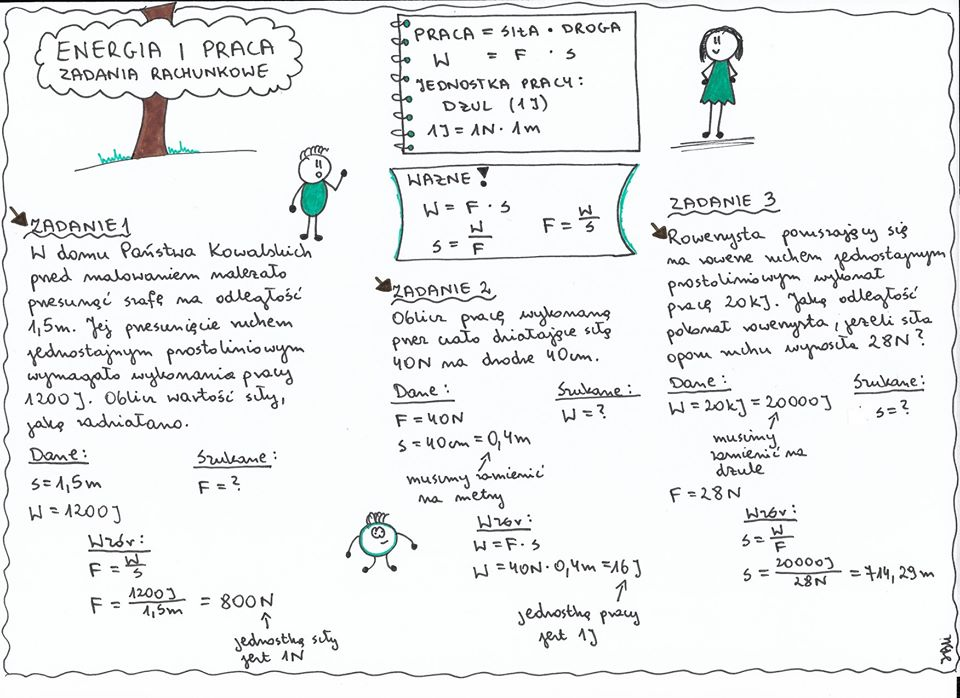 ENERGIA I PRACA
ZADANIA RACHUNKOWE
PRACA = SIŁA · DROGA
W = F · s
JEDNOSTKA PRACY:
DŻUL (1J)
1J = 1N · 1m
WAŻNE!
W = F · s
s = W/F
F = W/s
ZADANIE 1
W domu Państwa Kowalskich
przed malowaniem należało
przesunąć szafę na odległość
1,5m. Jej przesunięcie ruchem
jednostajnym prostoliniowym
wymagało wykonania pracy
1200J. Oblicz wartość siły,
jaką zadziałano.
Dane:
s = 1,5m
W = 1200J
Szukane:
F = ?
Wzór:
F = W/s
F = 1200J/1,5m = 800N
jednostką siły
jest 1N
ZADANIE 2
Oblicz pracę wykonaną
przez ciało działające siłą
40N na drodze 40cm.
Dane:
F = 40N
s = 40cm = 0,4m
musimy zamienić
na metry
Szukane:
W = ?
Wzór:
W = F · s
W = 40N · 0,4m = 16J
jednostką pracy
jest 1J
ZADANIE 3
Rowerzysta poruszający się
na rowerze ruchem jednostajnym
prostoliniowym wykonał
pracę 20kJ. Jaką odległość
pokonał rowerzysta, jeżeli siła
oporu ruchu wynosiła 28N?
Dane:
W = 20kJ = 20000J
musimy
zamienić na
dżule
F = 28N
Szukane:
s = ?
Wzór:
s = W/F
s = 20000J/28N = 714,29m